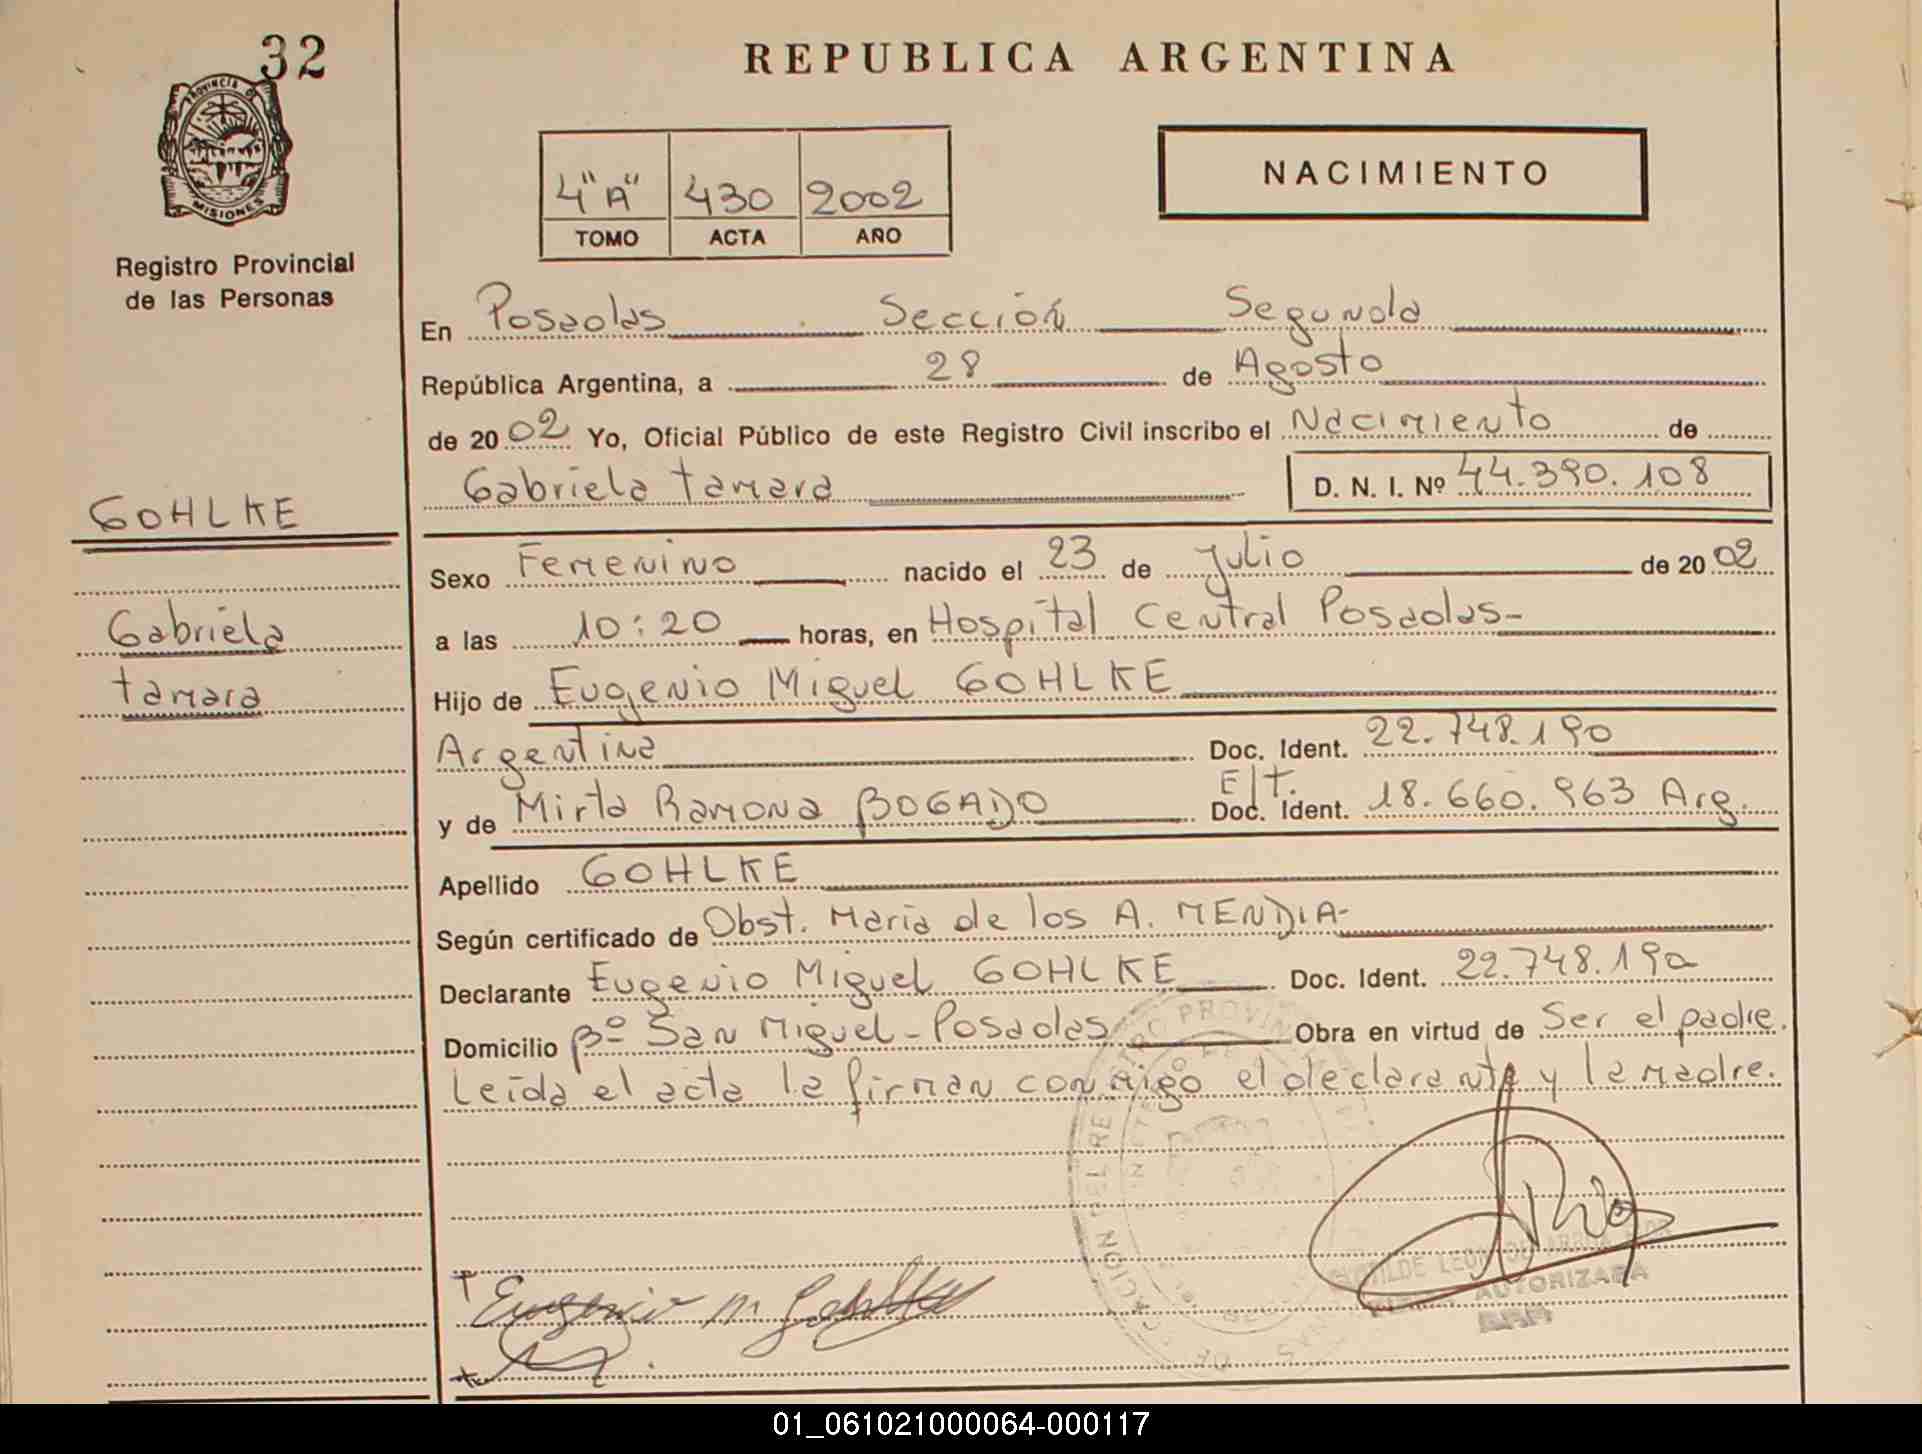 32
REPUBLICA ARGENTINA
PROVINCIA DE
MISIONES
Registro Provincial
de las Personas
4"A" 430 2002
TOMO ACTA AÑO
NACIMIENTO
En Posadas Sección Segunda
República Argentina, a 28 de Agosto
de 2002 Yo, Oficial Público de este Registro Civil inscribo el Nacimiento de
Gabriela Tamara D. N. I. Nº 44.390.108
GOHLKE
Gabriela
Tamara
Sexo Femenino nacido el 23 de Julio de 2002
a las 10:20 horas, en Hospital Central Posadas-
Hijo de Eugenio Miguel GOHLKE
Argentina Doc. Ident. 22.748.190
E/T.
y de Mirta Ramona BOGADO Doc. Ident. 18.660.963 Arg.
Apellido GOHLKE
Según certificado de Obst. Maria de los A. MENDIA-
Declarante Eugenio Miguel GOHLKE Doc. Ident. 22.748.190
Domicilio Bº San Miguel-Posadas Obra en virtud de Ser el padre.
Leida el acta la firman conmigo el declarante y la madre.
Eugenio M Gohlke
AUTORIZADA
01_061021000064-000117